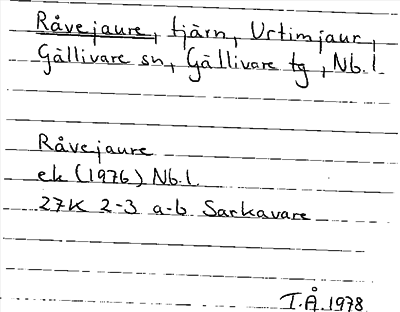 Råvejaure, tjärn, Urtimjaur,
Gällivare sn, Gällivare tg, Nb.l.
Råvejaure
ek (1976) Nb.l.
27K 2-3 a-b Sarkavare
I.Å.1978